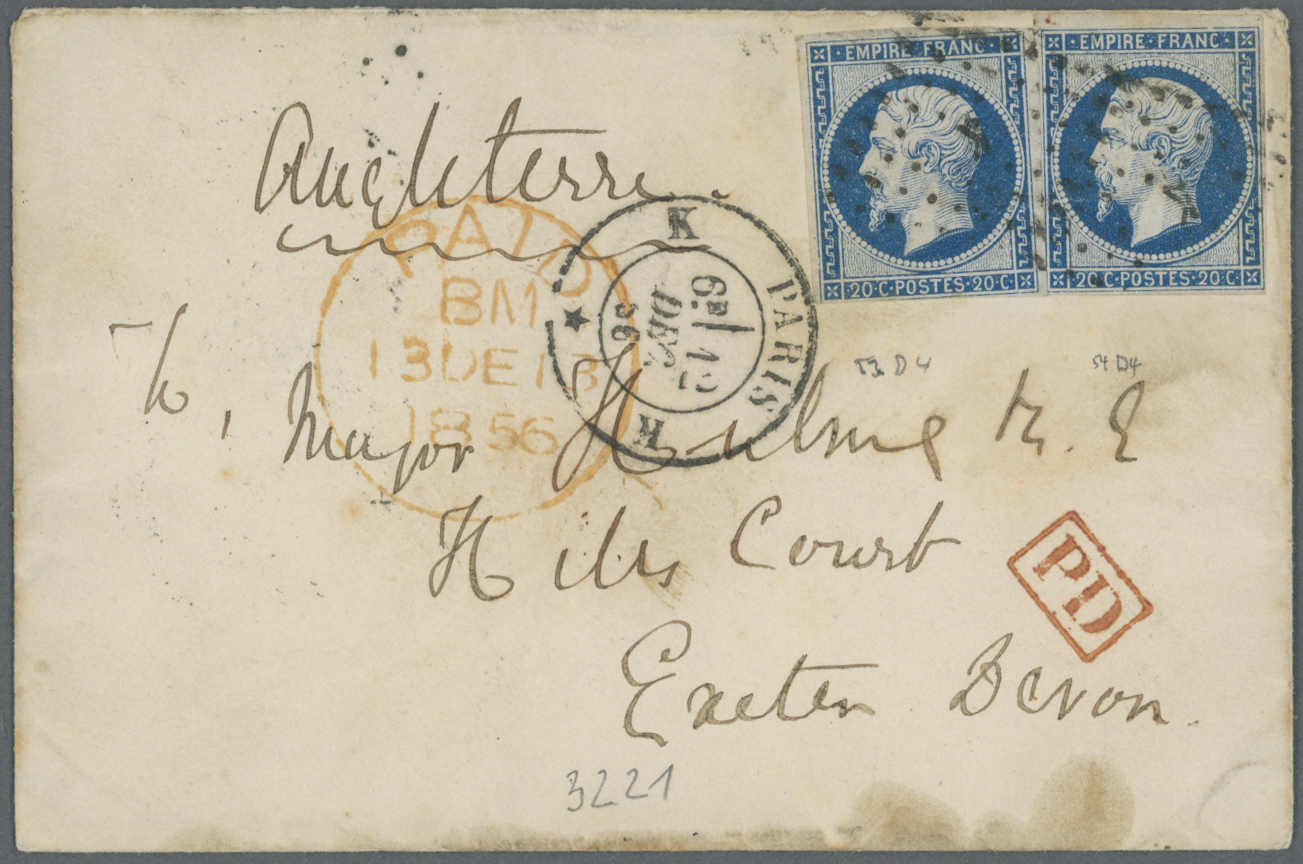 EMPIRE·FRANC· EMPIRE·FRANC·
20·C·POSTES·20·C· 20·C·POSTES·20·C·
Angleterre.
PAID
BM
13DE13
1856
K PARIS K
6E 12
DEC
56
53 D4 54 D4
To, Major Hulme R. E
Hills Court
PD
Exeter Devon.
3221